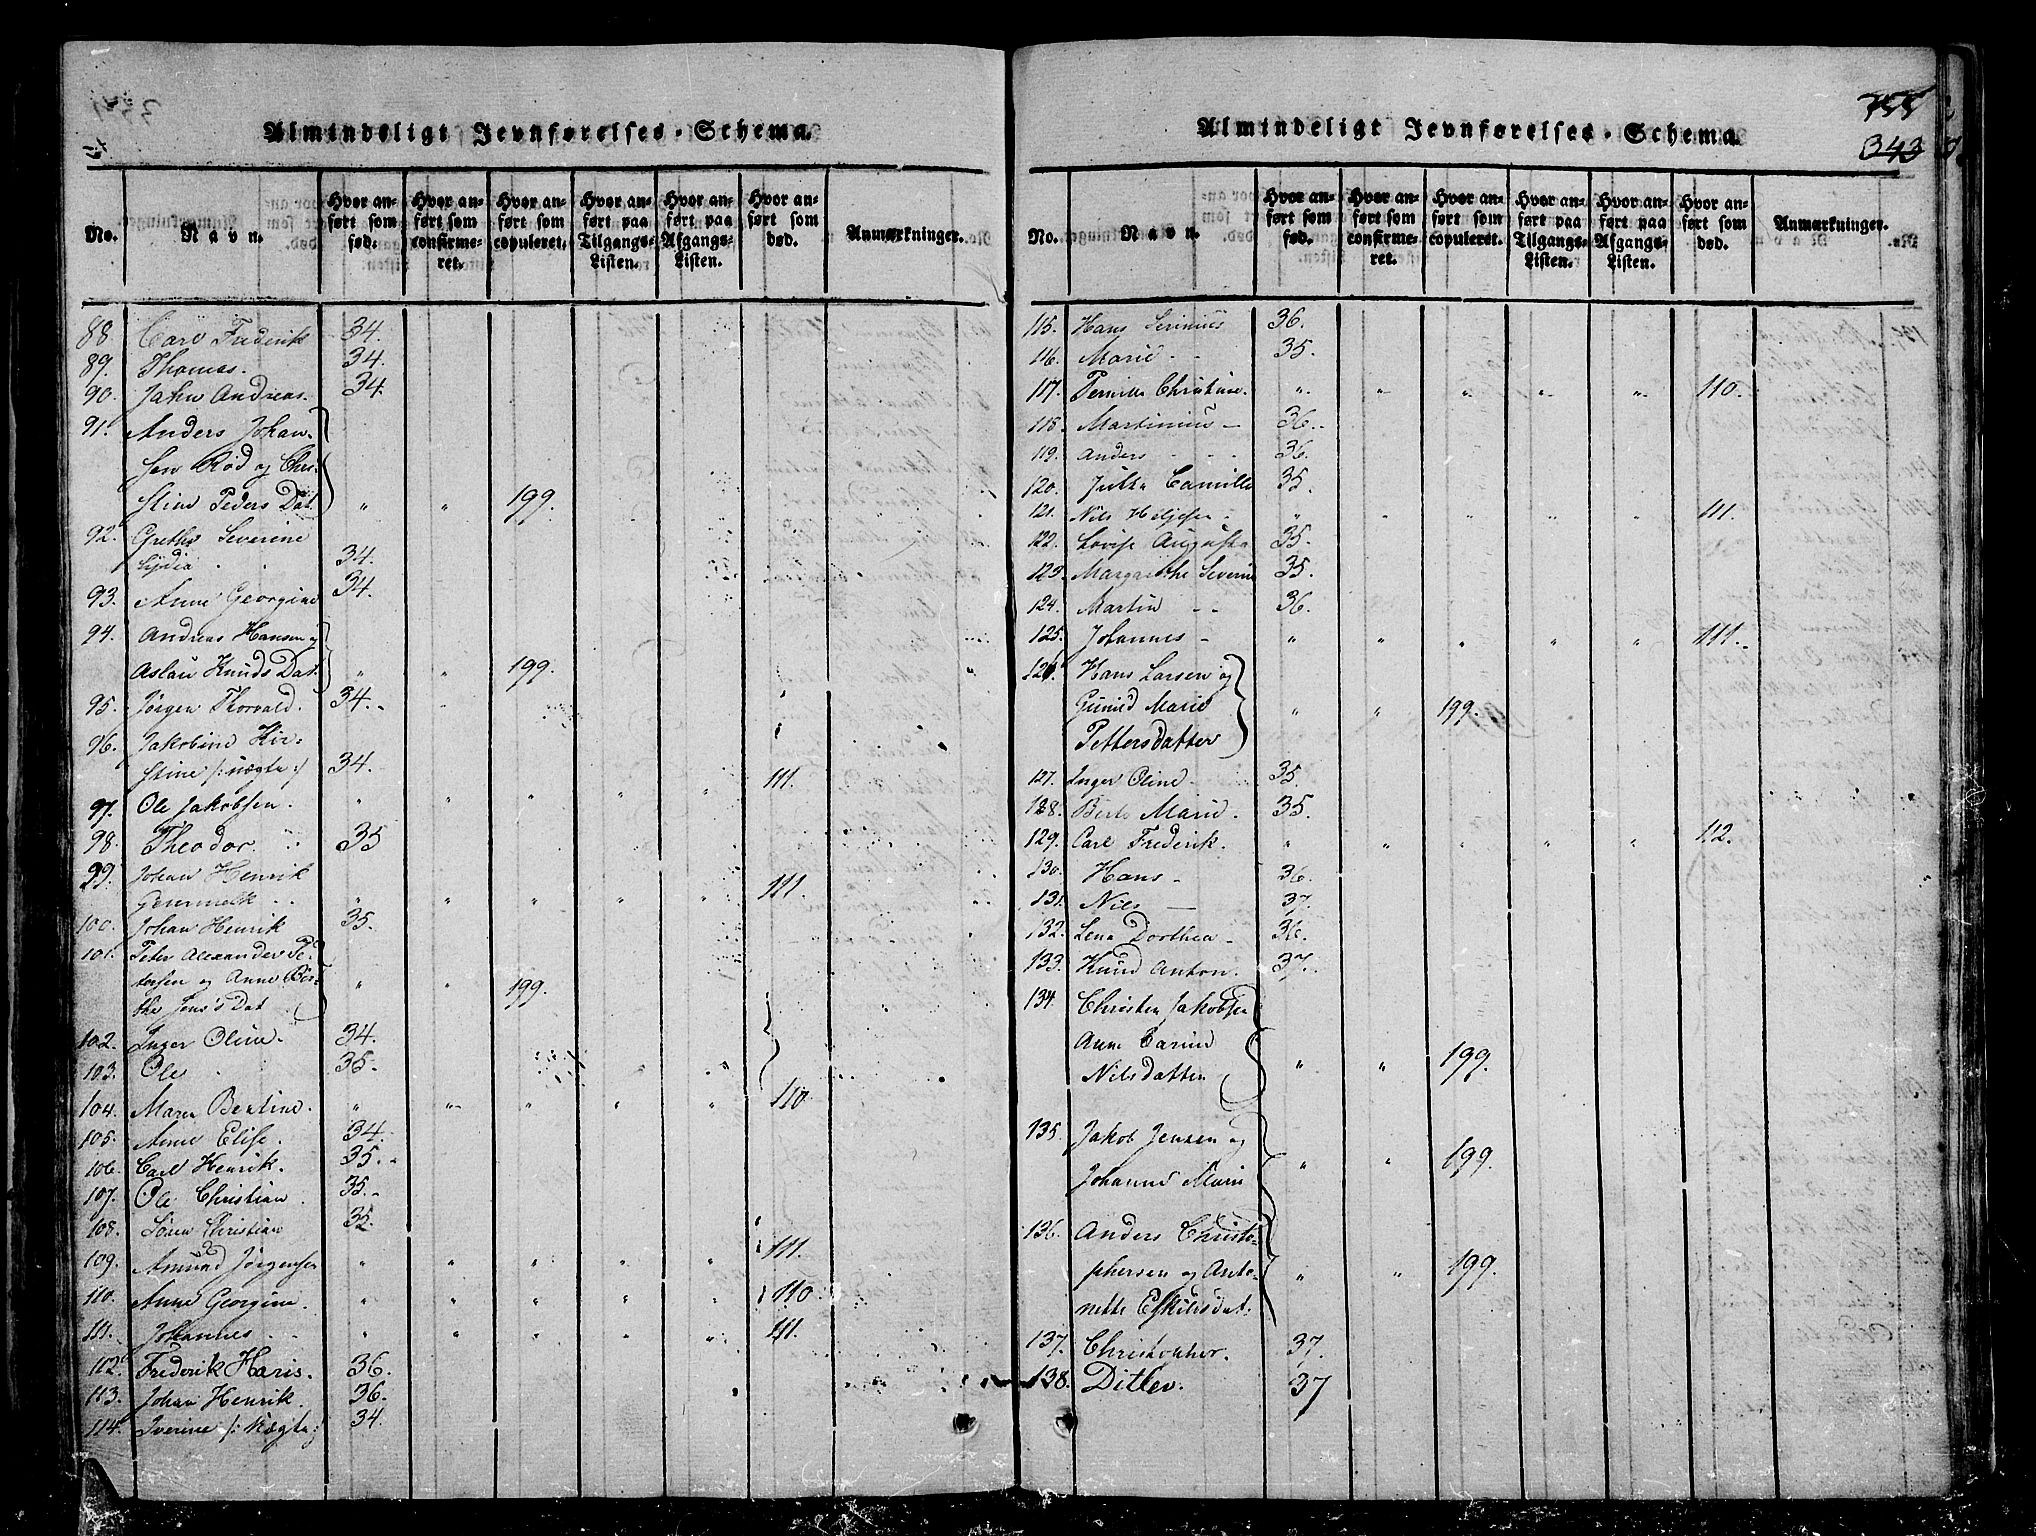 Almindeligt Jevnførelses-Schema.
No.
Navn.
Hvor anført som fød.
Hvor anført som confirmeret.
Hvor anført som copuleret.
Hvor anført paa Tilgangs-Listen.
Hvor anført paa Afgangs-Listen.
Hvor anført som død.
Anmærkninger.
88. Carl Frederik 34.
89. Thomas. 34.
90. Jahn Andreas. 34.
91. Anders Johan-
sen Rød og Chri-
stine Peders Dat. " " 199.
92. Grethe Severine
Lydia . . 34.
93. Anne Georgine 34.
94. Andreas Hansen og
Aslau Knuds Dat. " " 199.
95. Jørgen Thorvald. 34.
96. Jakobine Kir-
stine /: uægte :/ 34.
97. Ole Jakobsen. " " " " " 111.
98. Theodor. 35
99. Johan Henrik
" " " " " 111.
100. Johan Henrik 35.
101. Peter Alexander Pe-
tersen og Anne Bir-
the Jens's Dat " " 199.
102. Inger Oline. 34.
103. Ole . 35.
104. Maren Bentine. " " " " " 110
105. Anne Elise. 34.
106. Carl Henrik. 35.
107. Ole Christian. 35.
108. Søren Christian 35.
109. Amund Jørgensen " " " " " 111.
110. Anne Georgine. " " " " " 110.
111. Johannes . . " " " " " 111.
112. Frederik Haris. 36.
113. Johan Henrik. 36.
114. Iverine /: Uægte :/ 34.
755
343
Almindeligt Jevnførelses-Schema.
No.
Navn.
Hvor anført som fød.
Hvor anført som confirmeret.
Hvor anført som copuleret.
Hvor anført paa Tilgangs-Listen.
Hvor anført paa Afgangs-Listen.
Hvor anført som død.
Anmærkninger.
115. Hans Serinius 36.
116. Marie - - 35.
117. Pernille Christine. " " " " " 110.
118. Martinius - 36.
119. Anders - - - 36.
120. Jutta Camille 35.
121. Nils Heljesen - " " " " " 111.
122. Lovise Augusta 35.
123. Margarethe Severin 35.
124. Martin - - 36.
125. Johannes - " " " " " 111.
126. Hans Larsen og
Gunild Marie
Pettersdatter " " 199.
127. Inger Oline. 35.
128. Berte Marie. 35.
129. Carl Frederik. " " " " " 112.
130. Hans - 36.
131. Nils - 37.
132. Lena Dorthea - 36.
133. Knud Anton. 37.
134. Christen Jakobsen
Anne Carine
Nilsdatter " " 199.
135. Jakob Jensen og
Johanne Marie " " 199.
136. Anders Christo-
phersen og Anto-
nette Eskildsdat: " " 199.
137. Christopher. 37.
138. Ditlev. 37